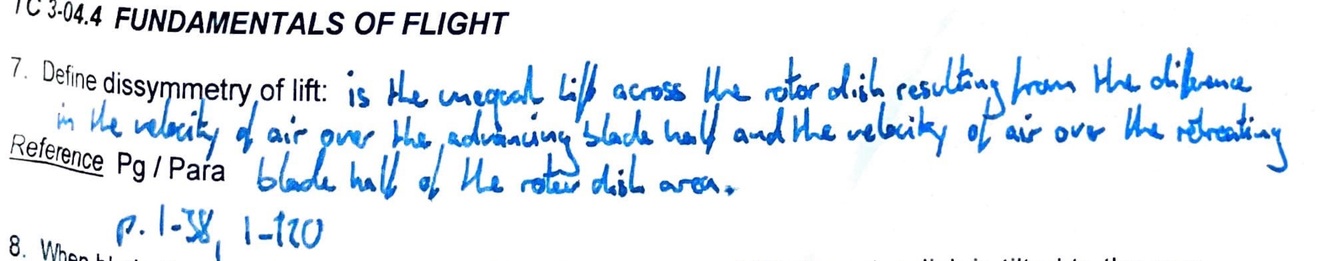 TC 3-04.4 FUNDAMENTALS OF FLIGHT
7. Define dissymmetry of lift: is the unequal lift across the rotor dish resulting from the difference
in the velocity of air over the advancing blade half and the velocity of air over the retreating
Reference Pg / Para blade half of the rotor dish area.
p. 1-38, 1-120
8. When